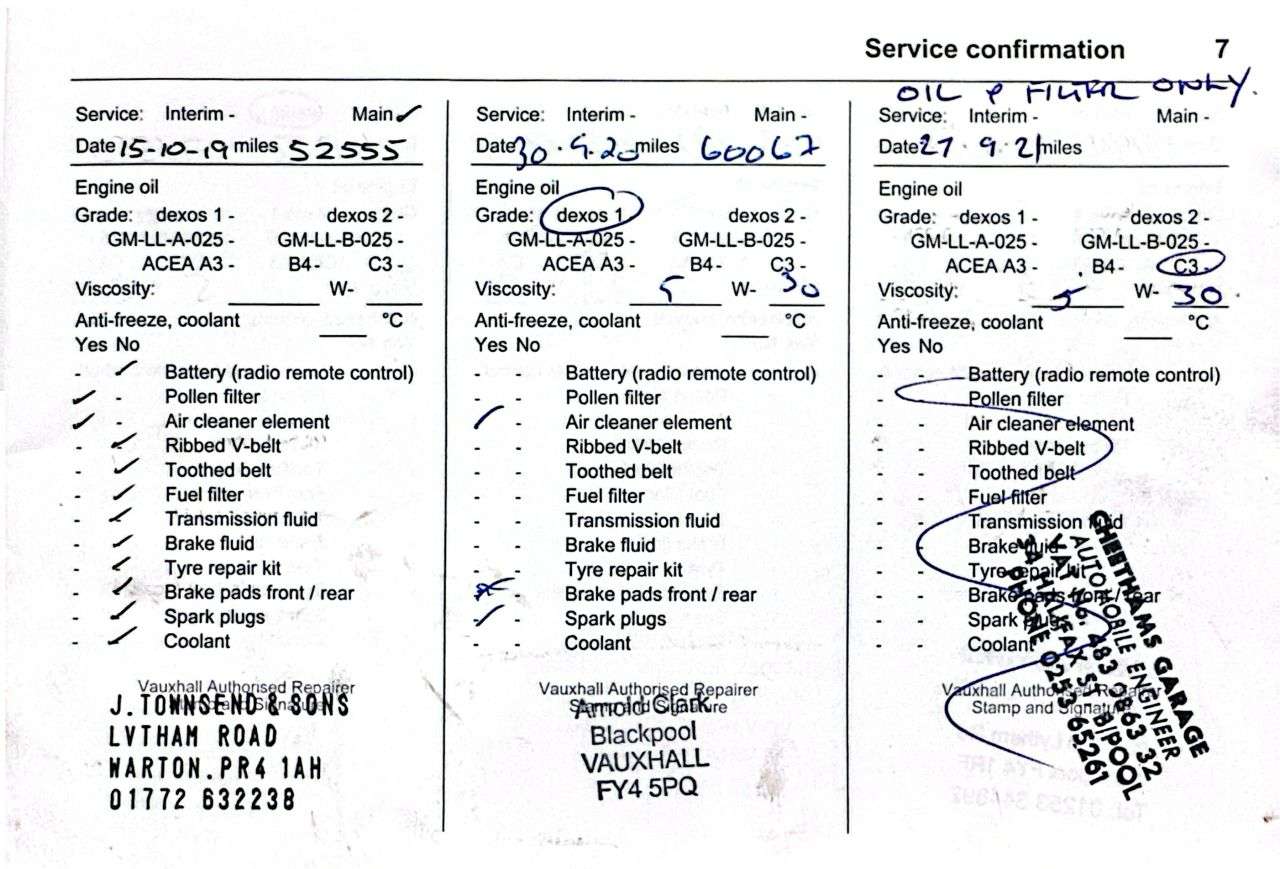 Service confirmation 7
Service: Interim - Main ✓
Date 15-10-19 miles 52555
Engine oil
Grade: dexos 1 - dexos 2 -
GM-LL-A-025 - GM-LL-B-025 -
ACEA A3 - B4 - C3 -
Viscosity: W-
Anti-freeze, coolant °C
Yes No
✓ Battery (radio remote control)
✓ - Pollen filter
✓ - Air cleaner element
- ✓ Ribbed V-belt
- ✓ Toothed belt
- ✓ Fuel filter
- ✓ Transmission fluid
- ✓ Brake fluid
- ✓ Tyre repair kit
- ✓ Brake pads front / rear
- ✓ Spark plugs
- ✓ Coolant
Vauxhall Authorised Repairer
Stamp and Signature
J. TOWNSEND & SONS
LYTHAM ROAD
WARTON. PR4 1AH
01772 632238
Service: Interim - Main -
Date 30 · 9.20 miles 60067
Engine oil
Grade: dexos 1 dexos 2 -
GM-LL-A-025 - GM-LL-B-025 -
ACEA A3 - B4- C3 -
Viscosity: 5 W- 30
Anti-freeze, coolant °C
Yes No
- - Battery (radio remote control)
- - Pollen filter
✓ - Air cleaner element
- - Ribbed V-belt
- - Toothed belt
- - Fuel filter
- - Transmission fluid
- - Brake fluid
- - Tyre repair kit
- Brake pads front / rear
✓ - Spark plugs
- - Coolant
Vauxhall Authorised Repairer
Stamp and Signature
Arnold Clark
Blackpool
VAUXHALL
FY4 5PQ
OIL & FILTER ONLY.
Service: Interim - Main -
Date 27 . 9.21 miles
Engine oil
Grade: dexos 1 - dexos 2 -
GM-LL-A-025 - GM-LL-B-025 -
ACEA A3 - B4- C3 -
Viscosity: 5 W- 30
Anti-freeze, coolant °C
Yes No
- Battery (radio remote control)
- Pollen filter
- - Air cleaner element
- - Ribbed V-belt
- - Toothed belt
- - Fuel filter
- - Transmission fluid
- - Brake fluid
- - Tyre repair kit
- - Brake pads front / rear
- - Spark plugs
- - Coolant
Vauxhall Authorised Repairer
Stamp and Signature
CHEETHAMS GARAGE
AUTOMOBILE ENGINEER
VAT No. 483 3863 32
34 HALIFAX ST B/POOL
PHONE 0253 65261